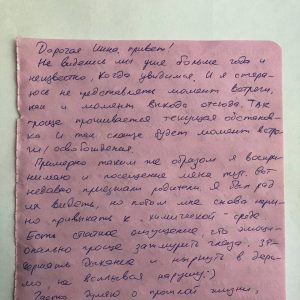 Дорогая Инна, привет!
Не виделись мы уже больше года и
неизвестно, когда увидимся. И я стара-
юсь не представлять момент встречи,
как и момент выхода отсюда. Так
проще проживается текущая обстанов-
ка. И тем слаще будет момент встре-
чи/освобождения.
Примерно таким же образом я воспри-
нимаю и посещение меня тут. Вот
недавно приезжали родители. Я был рад
их видеть, но потом мне снова нужно
привыкать к среде.
Есть стойкое ощущение, что эмоци-
онально проще зажмурить глаза, за-
держать дыхание и нырнуть в дерь-
мо не всплывая наружу:)
Часто думаю о прошлой жизни,